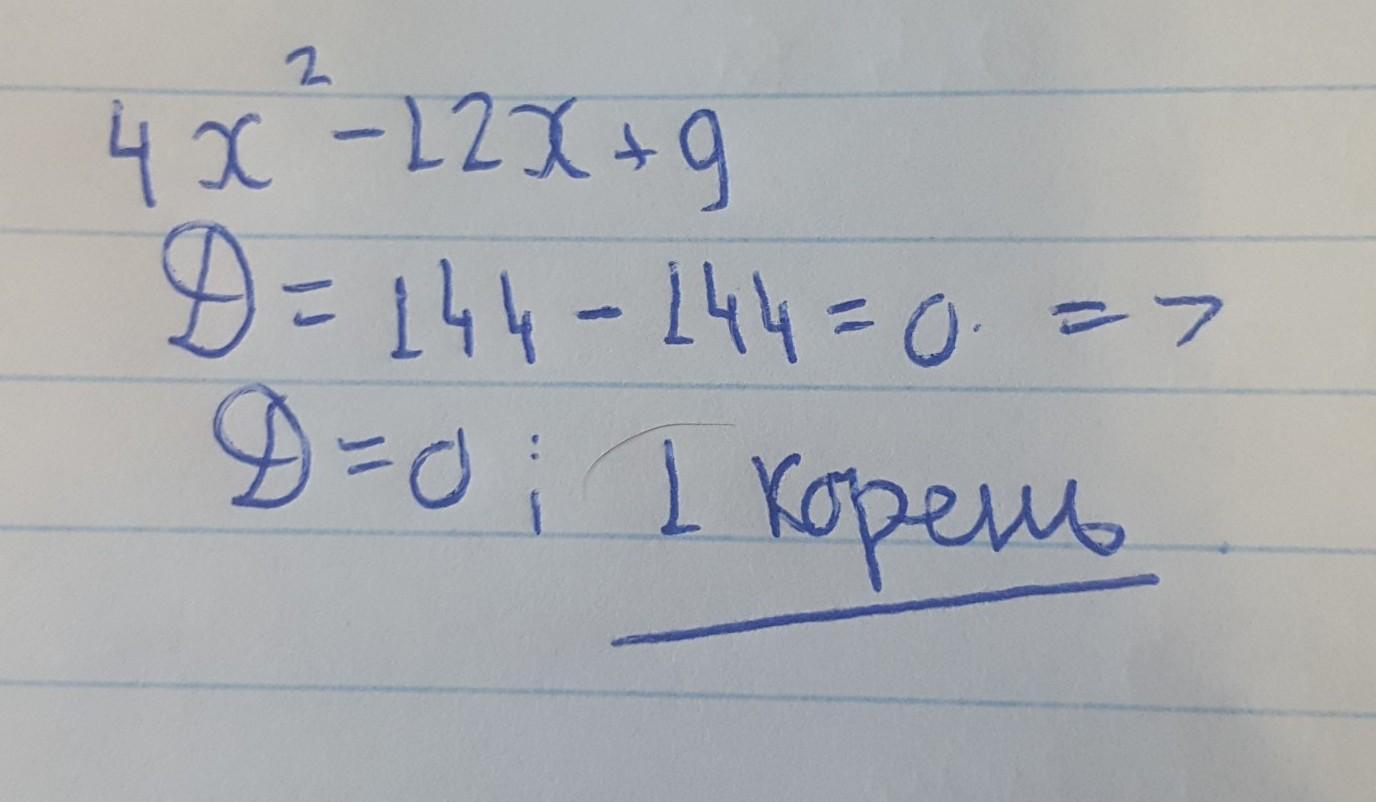 4x² - 12x + 9
D = 144 - 144 = 0. =>
D = 0 ; 1 корень